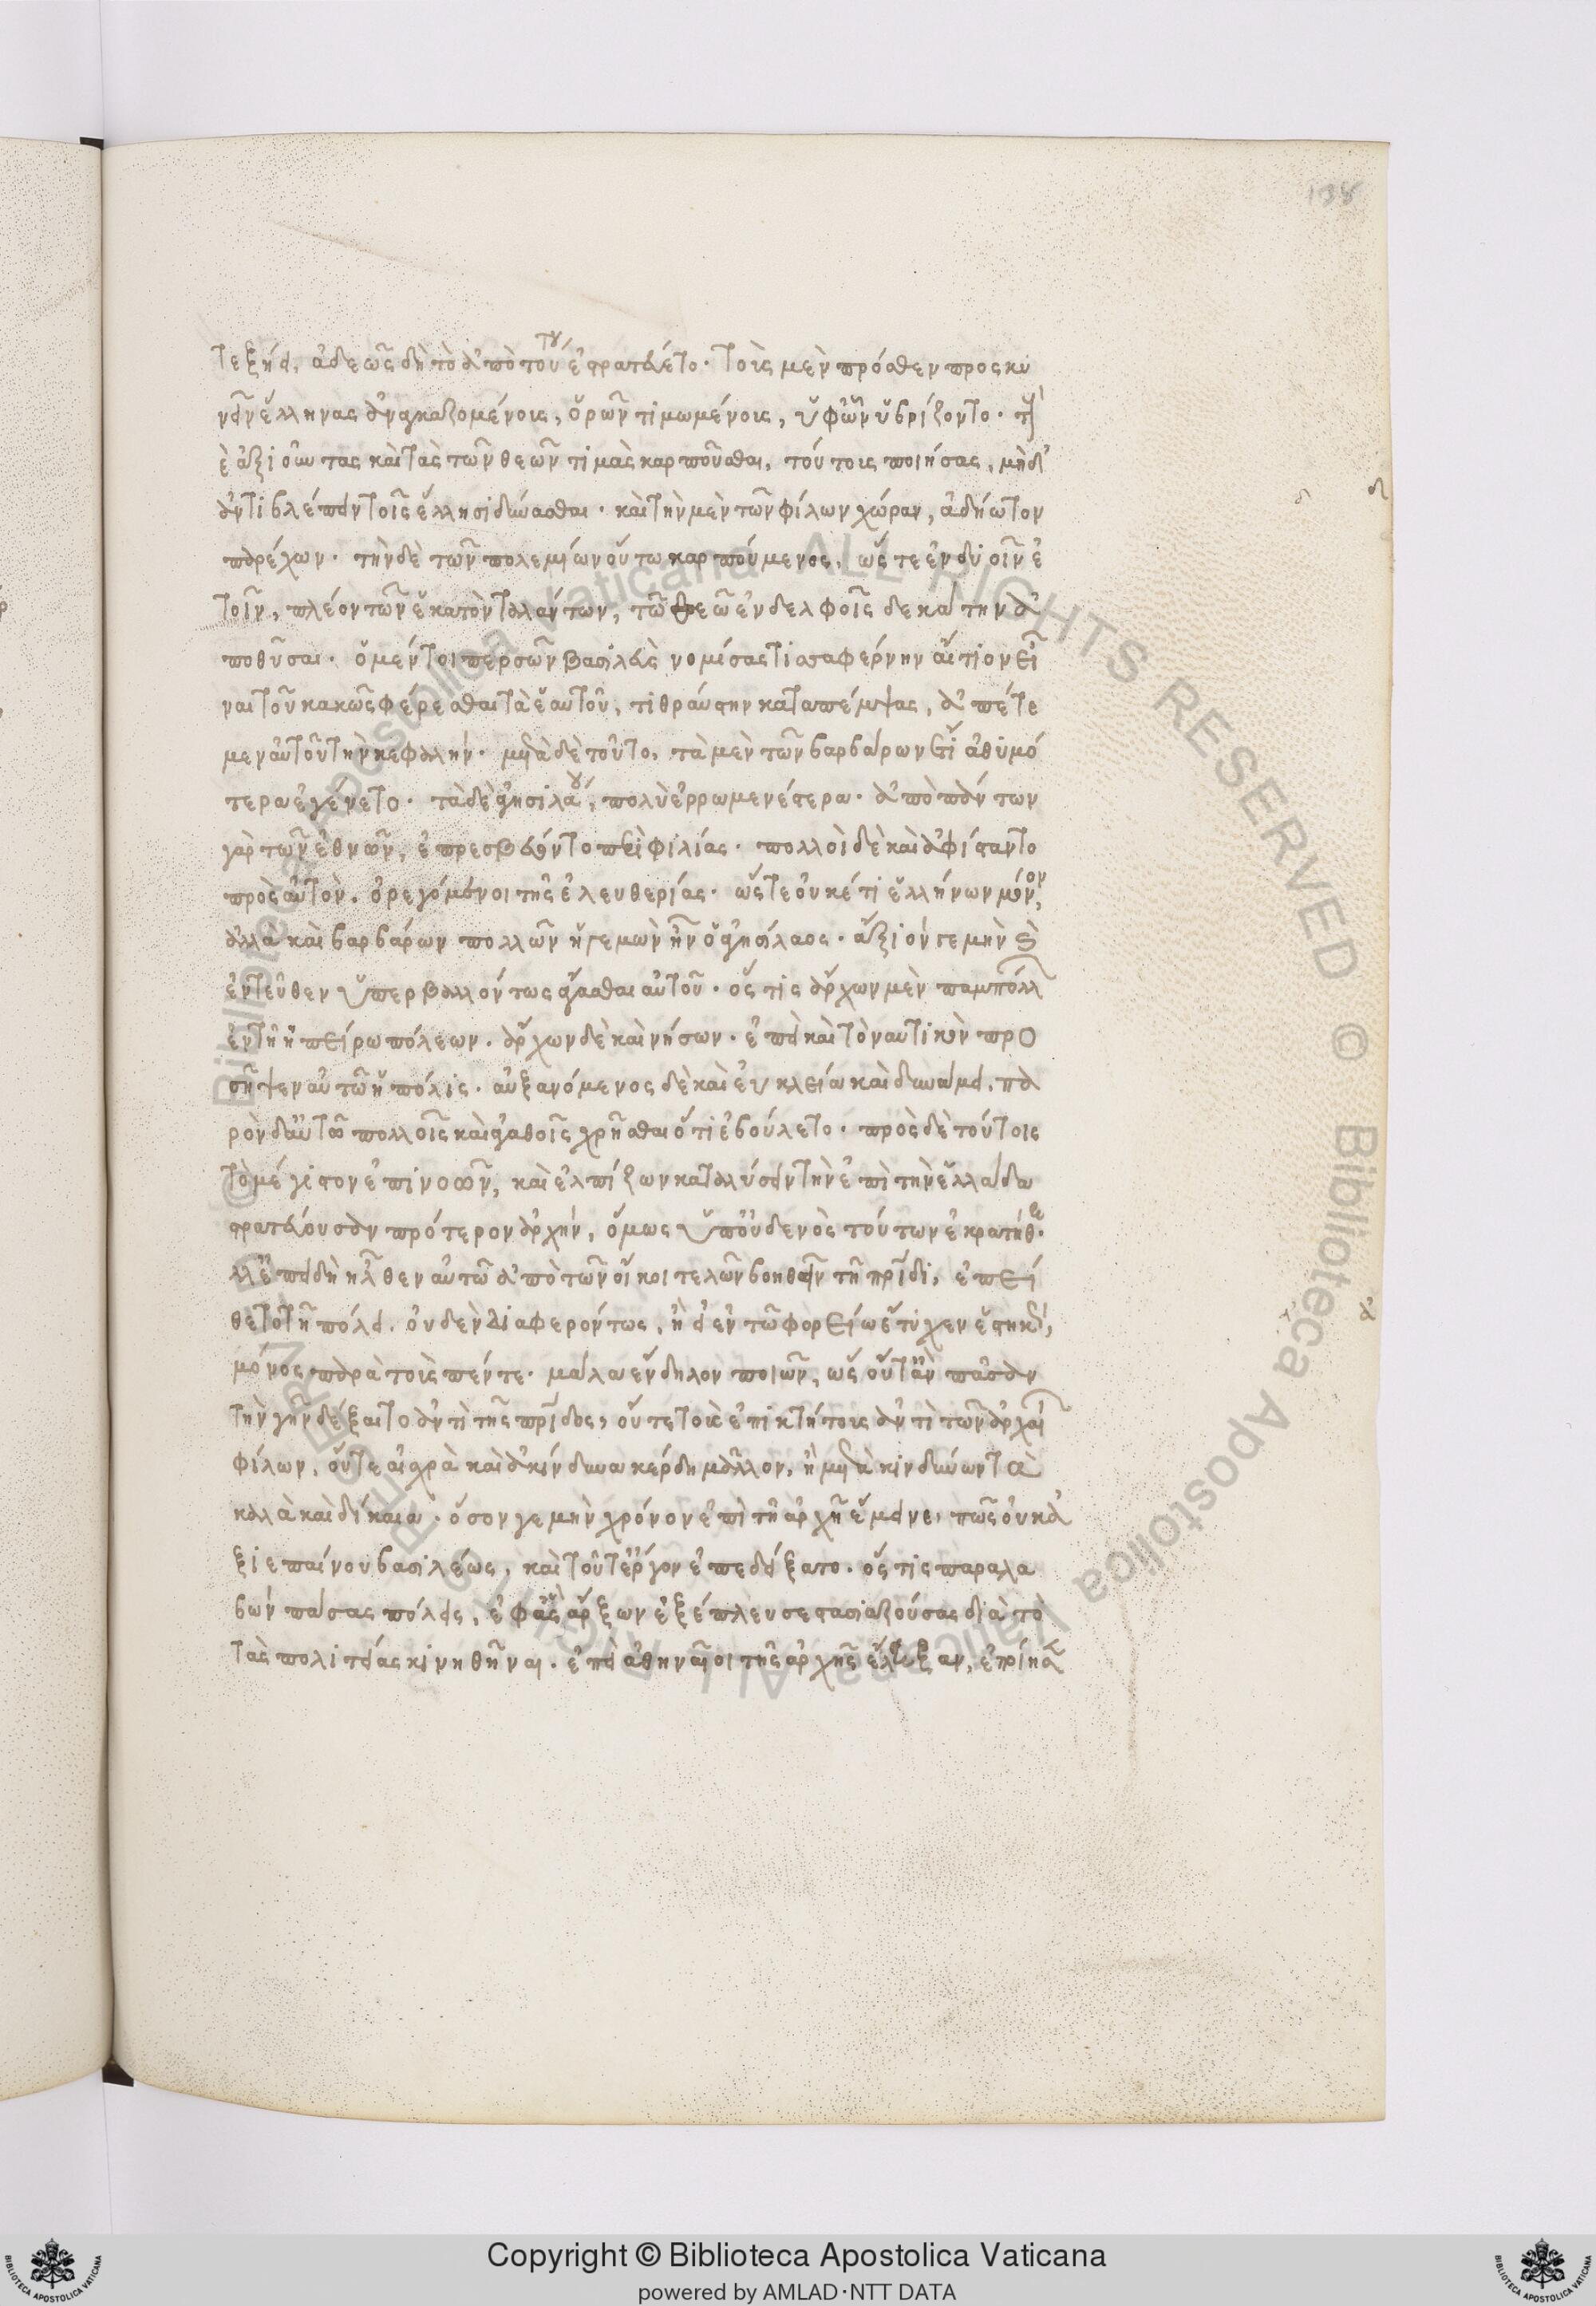 138
τεξῄει, ἀδεῶς δὴ τὸ ἀπὸ τούτου ἐστρατεύετο. τοὺς μὲν πρόσθεν προσκυ
νεῖν ἕλληνας ἀναγκαζομένους, ὁρῶν τιμωμένους, ὑφ' ὧν ὑβρίζοντο. τοὺς
δ' ἀξιοῦντας καὶ τὰς τῶν θεῶν τιμὰς καρποῦσθαι, τούτους ποιήσας, μηδ'
ἀντιβλέπειν τοῖς ἕλλησι δύνασθαι. καὶ τὴν μὲν τῶν φίλων χώραν, ἀδῄωτον
παρέχων. τὴν δὲ τῶν πολεμίων οὕτω καρπούμενος, ὥστε ἐν δυοῖν ἐ
τοῖν, πλέον τῶν ἑκατὸν ταλάντων, τῶ θεῶ ἐν δελφοῖς δεκάτην ἀ
ποθῦσαι. ὁ μέντοι περσῶν βασιλεὺς νομίσας τισσαφέρνην αἴτιον εἶ
ναι τοῦ κακῶς φέρεσθαι τὰ ἑαυτοῦ, τιθραύστην καταπέμψας, ἀπέτε
μεν αὐτοῦ τὴν κεφαλήν. μετὰ δὲ τοῦτο, τὰ μὲν τῶν βαρβάρων ἔτι ἀθυμό
τερα ἐγένετο. τὰ δὲ ἀγησιλάου, πολὺ ἐρρωμενέστερα. ἀπὸ πάντων
γὰρ τῶν ἐθνῶν, ἐπρεσβεύοντο περὶ φιλίας. πολλοὶ δὲ καὶ ἀφίσταντο
πρὸς αὐτὸν. ὀρεγόμενοι τῆς ἐλευθερίας. ὥστε οὐκέτι ἑλλήνων μόνον,
ἀλλὰ καὶ βαρβάρων πολλῶν ἡγεμὼν ἦν ὁ ἀγησίλαος. ἄξιόν γε μὴν καὶ
ἐντεῦθεν ὑπερβαλλόντως ἄγασθαι αὐτοῦ. ὅστις ἄρχων μὲν παμπόλλων
ἐν τῆ ἠπείρω πόλεων. ἄρχων δὲ καὶ νήσων. ἐπεὶ καὶ τὸ ναυτικὸν προ
σῆψεν αὐτῶ ἡ πόλις. αὐξανόμενος δὲ καὶ εὐκλεία καὶ δυνάμει. πα
ρὸν δ' αὐτῶ πολλοῖς καὶ ἀγαθοῖς χρῆσθαι ὅτι ἐβούλετο. πρὸς δὲ τούτοις
τὸ μέγιστον ἐπινοῶν, καὶ ἐλπίζων καταλύσειν τὴν ἐπὶ τὴν ἑλλάδα
στρατεύουσαν πρότερον ἀρχήν, ὅμως ὑπ' οὐδενὸς τούτων ἐκρατήθη.
ἀλλ' ἐπειδὴ ἦλθεν αὐτῶ ἀπὸ τῶν οἴκοι τελῶν βοηθεῖν τῆ πατρίδι, ἐπεί
θετο τῆ πόλει. οὐδὲν διαφερόντως, ἢ εἰ ἐν τῶ ἐφορείω ἔτυχεν ἑστηκὼς,
μόνος παρὰ τοὺς πέντε. μάλα ἔνδηλον ποιῶν, ὡς οὔτ' ἂν πᾶσαν
τὴν γῆν δέξαιτο ἀντὶ τῆς πατρίδος, οὔτε τοὺς ἐπικτήτους ἀντὶ τῶν ἀρχαίων
φίλων, οὔτε αἰσχρὰ καὶ ἀκίνδυνα κέρδη μᾶλλον, ἢ μετὰ κινδύνων τὰ
καλὰ καὶ δίκαια. ὅσον γε μὴν χρόνον ἐπὶ τῆ ἀρχῆ ἔμεινε, πῶς οὐκ ἀ
ξιεπαίνου βασιλέως, καὶ τοῦτ' ἔργον ἐπεδείξατο. ὅστις παραλα
βὼν πάσας πόλεις, ἐφ' ἃς ἄρξων ἐξέπλευσε στασιαζούσας διὰ τὸ
τὰς πολιτείας κινηθῆναι. ἐπεὶ ἀθηναῖοι τῆς ἀρχῆς ἔληξαν, ἐποίησεν
Copyright © Biblioteca Apostolica Vaticana
powered by AMLAD·NTT DATA